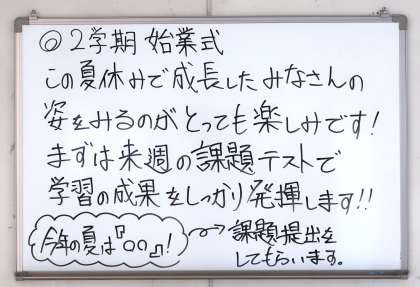 ◎2学期 始業式
この夏休みで成長したみなさんの
姿をみるのがとっても楽しみです!
まずは来週の課題テストで
学習の成果をしっかり発揮します!!
今年の夏は『○○』!
課題提出を
してもらいます。